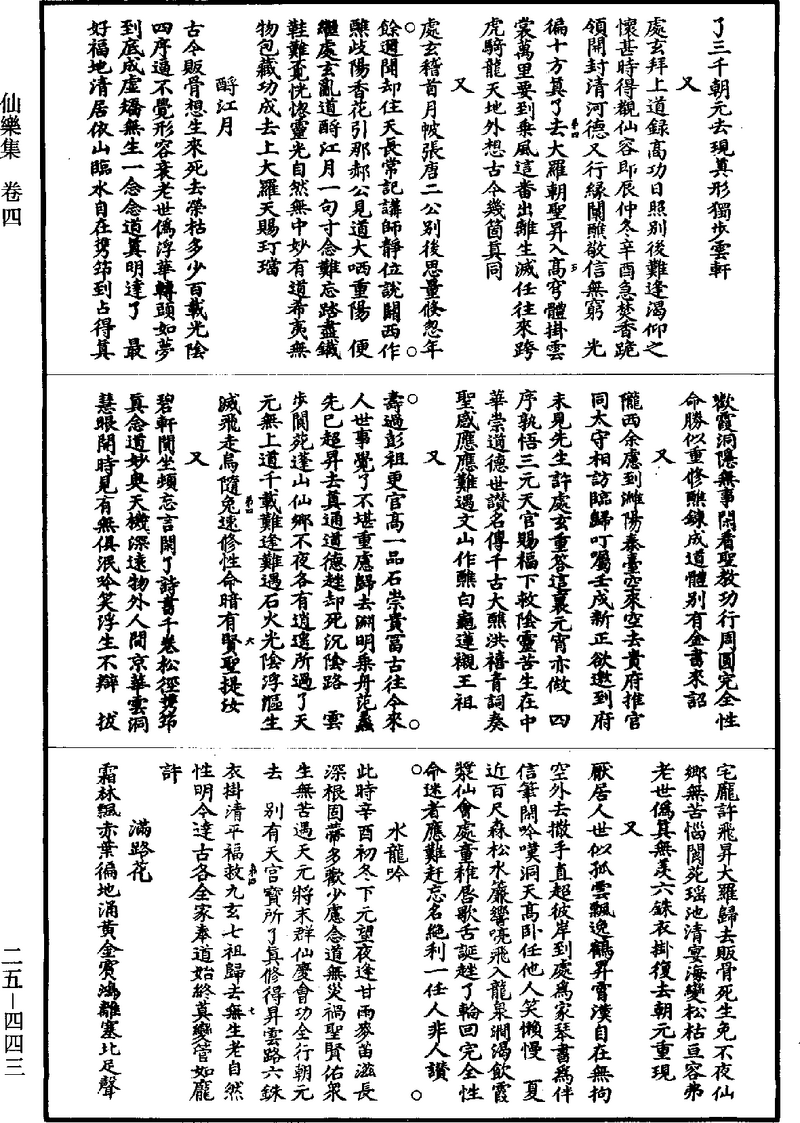 仙樂集 卷四
二五—四四三
了三千朝元去現眞形獨步雲軒
又
處玄拜上道錄高功日照別後難逢渴仰之
懷甚時得覩仙容即辰仲冬辛酉急焚香跪
領開封清河德又行緣闡醮敬信無窮 光
徧十方眞了去大羅朝聖昇入高穹體掛雲
裳萬里要到乘風這番出離生滅任往來跨
虎騎龍天地外想古今幾箇眞同
又
處玄稽首月帔張唐二公別後思量倏忽年
餘邇聞却住天長常記講師靜位說關西作
醮歧陽香花引那郝公見道大哂重陽 便
繼處玄亂道酹江月一句寸念難忘踏盡鐵
鞋難覓恍惚靈光自然無中妙有道希夷無
物包藏功成去上大羅天賜玎璫
酹江月
古今販骨想生來死去榮枯多少百載光陰
四序逼不覺形容衰老世僞浮華轉頭如夢
到底成虛矯無生一念念道眞明達了 最
好福地清居依山臨水自在携筇到占得眞
歡霞洞隱無事閑看聖教功行周圓完全性
命勝似重修醮鍊成道體別有金書來詔
又
隴西余慮到濰陽秦臺空來空去貴府推官
同太守相訪臨歸叮囑壬戌新正欲邀到府
未見先生許處玄重答這裏元宵亦做 四
序孰悟三元天官賜福下救陰靈苦生在中
華崇道德世讃名傳千古大醮洪禧青詞奏
聖感應應難遇文山作醮白龜蓮襯王祖
又
壽過彭祖更官高一品石崇貴富古往今來
人世事覺了不堪重慮歸去淵明乘舟范蠡
先已超昇去眞通道德趓却死沉陰路 雲
步閬苑蓬山仙鄉不夜各有逍遙所過了天
元無上道千載難逢難遇石火光陰浮漚生
滅飛走烏隨兔速修性命暗有賢聖提汝
又
碧軒閑坐頻忘言閑了詩書千卷松徑携筇
眞念道妙奧天機深遠物外人間京華雲洞
慧眼開時見有無俱泯吟笑浮生不辯 拔
宅龐許飛昇大羅歸去販骨死生免不夜仙
鄉無苦惱閬苑瑤池清宴海變松枯亘容弗
老世僞眞無羡六銖衣掛復去朝元重現
又
厭居人世似孤雲飄逸鶴昇霄漢自在無拘
空外去撒手直超彼岸到處爲家琴書爲伴
信筆閑吟嘆洞天高卧任他人笑懶慢 夏
近百尺森松水簾響亮飛入龍泉澗渴飲霞
漿仙會處童稚唇歌舌誕趓了輪回完全性
命迷者應難赶忘名絶利一任人非人讃
水龍吟
此時辛酉初冬下元望夜逢甘雨麥苗滋長
深根固蔕多歡少慮念道無災禍聖賢佑衆
生無苦遇天元將末群仙慶會功全行朝元
去 別有天宮寳所了眞修得昇雲路六銖
衣掛清平福救九玄七祖歸去無生老自然
性明今達古各全家奉道始終莫變管如龐
許
滿路花
霜林飄赤葉徧地涌黃金賓鴻離塞北足聲